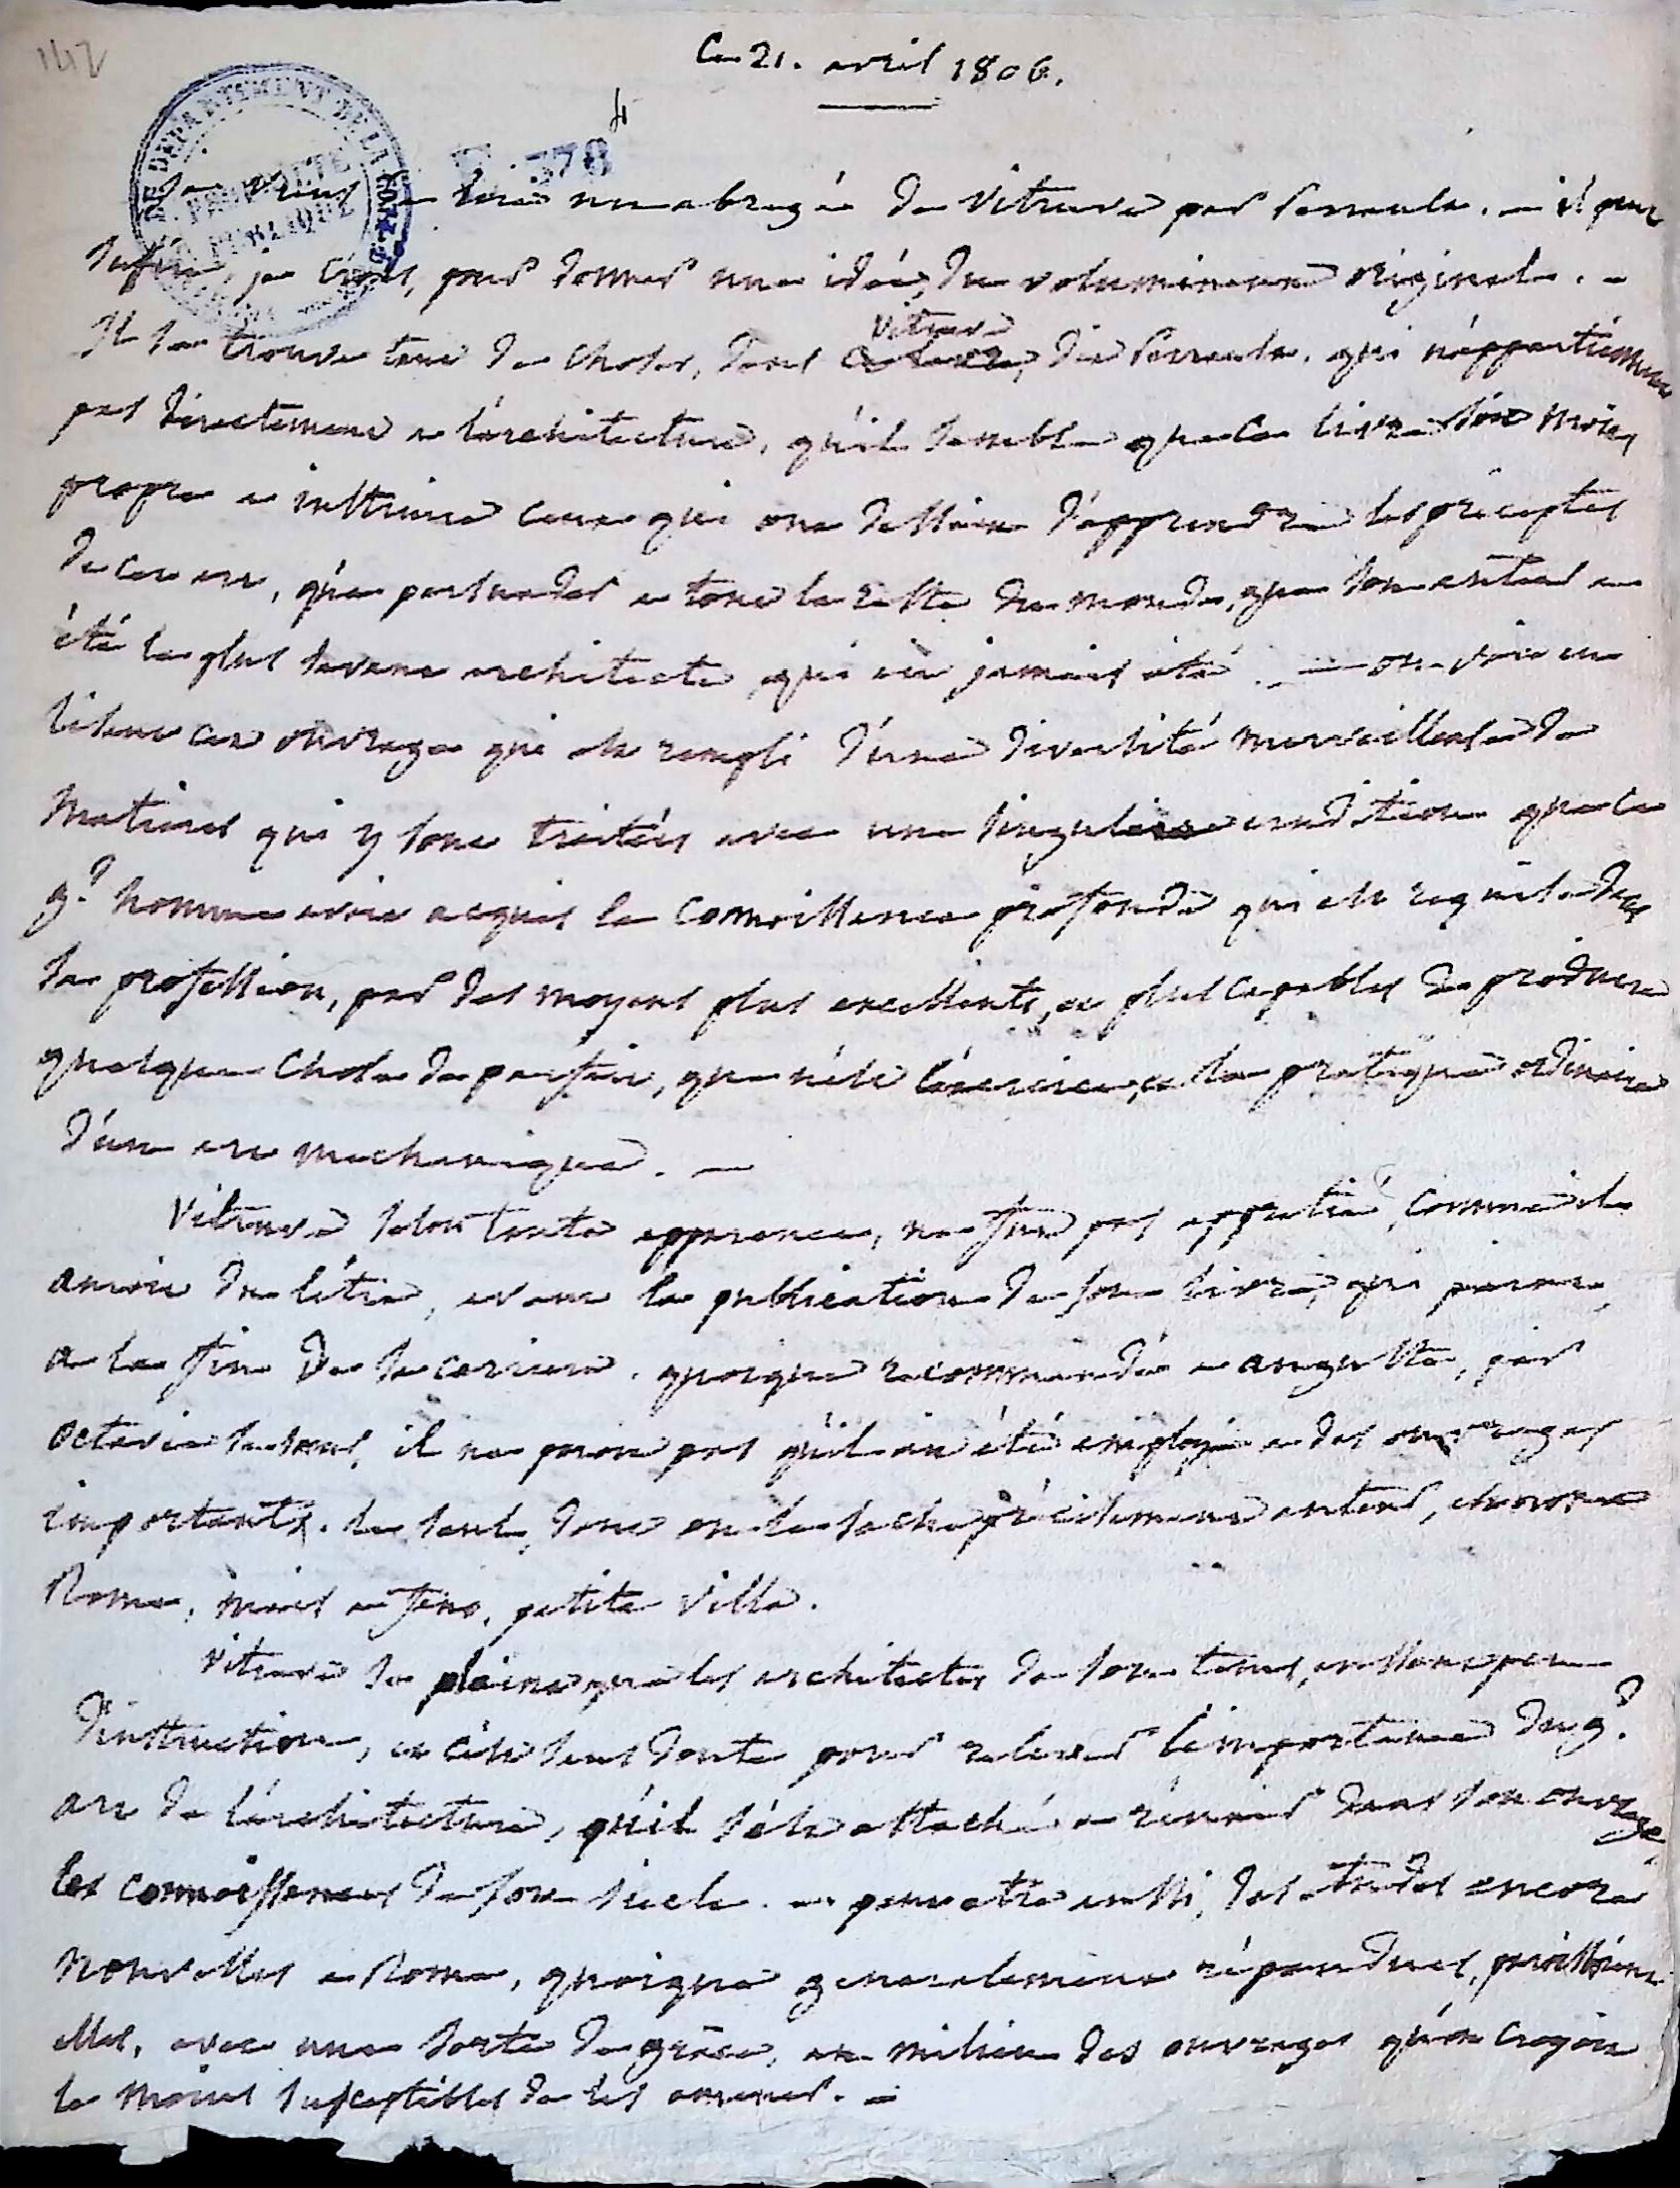 142
Ce 21. avril 1806.
DU DEPARTEMENT DE LA CORSE
PROPRIETE
PUBLIQUE
378
Je viens de lire un abregé de Vitruve par Perrault. – il peut
suffire, je crois, pour donner une idée, du volumineux original. –
Il se trouve tant de choses, dans Vitruve, dit Perrault, qui n'appartiennent
pas directement a l'architecture, qu'il semble que ce livre soit moins
propre a instruire ceux qui ont dessein d'apprendre les préceptes
de cet art, qu'a persuader a tout le reste du monde, que son auteur a
été le plus savant architecte, qui ait jamais été. — on voit en
lisant cet ouvrage qui est rempli d'une diversité merveilleuse de
matieres qui y sont traitées avec une singuliere erudition que ce
gd. homme avoit acquis la connoissance profonde qui est requise dans
sa profession, par des moyens plus excellents, et plus capables de produire
quelque chose de parfait, que n'est l'exercice, et la pratique ordinaire
d'un art mechanique. —
Vitruve selon toute apparence, ne fut pas apprécié, comme il
auroit du l'être, avant la publication de son livre, qui parut
a la fin de sa carriere. quoique recommandé a auguste, par
octavie sa soeur, il ne paroit pas qu'il ait été employé a des ouvrages
importants. le seul, dont on le sache précisement auteur, est non a
Rome, mais a fano, petite ville.
Vitruve se plaint que les architectes de son tems, eussent peu
d'instruction, et c'est sans doute pour relever l'importance du gd.
art de l'architecture, qu'il s'est attaché a réunir dans son ouvrage,
les connoissances de son siecle. – peut etre aussi, des etudes encore
nouvelles a Rome, quoique generalement répandues, paroissoient
elles, avec une sorte de grâce, au milieu des ouvrages qu'on croyoit
le moins susceptibles de les amener. –